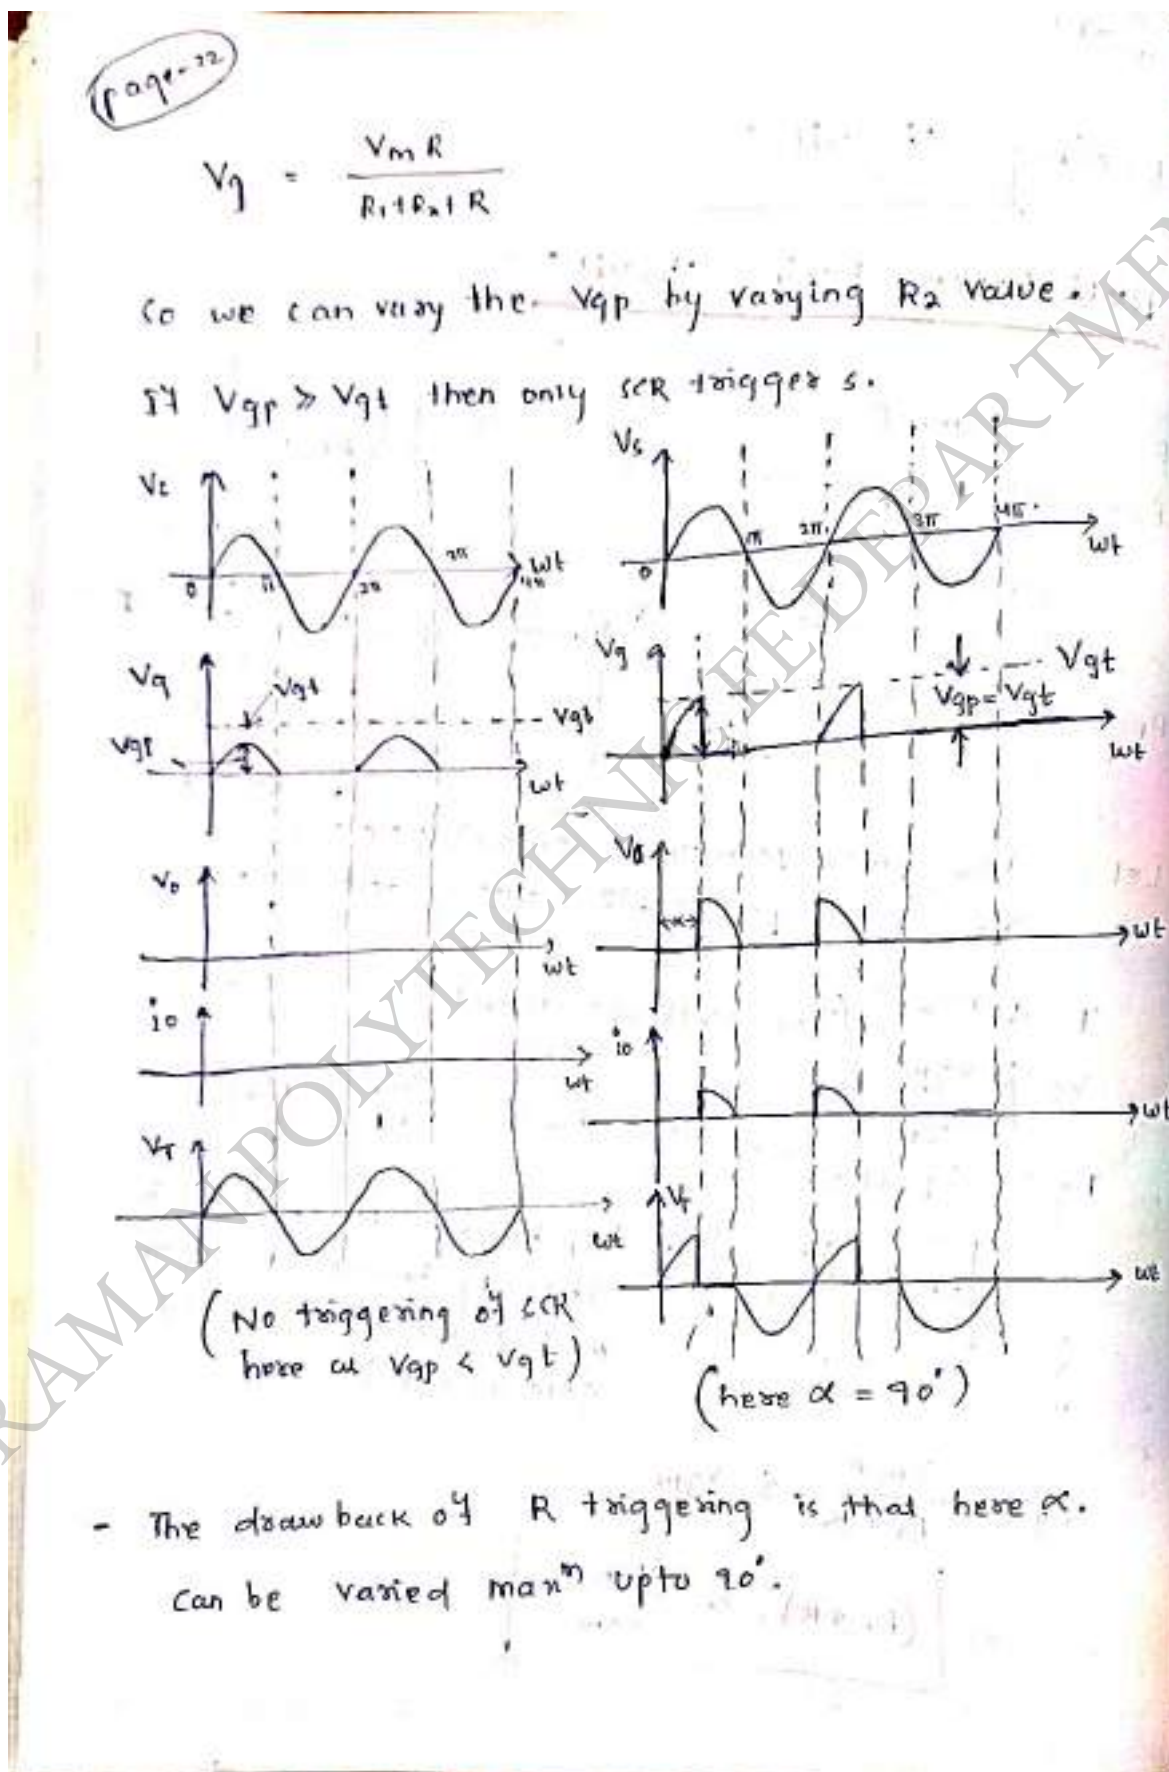 page-22
Vg = Vm R
R1+R2+R
So we can vary the Vgp by varying R2 value.
If Vgp ≥ Vgt then only SCR triggers.
Vs
0 π 2π 3π 4π
ωt
Vg
Vgt
Vgt
Vgp
ωt
Vo
ωt
io
ωt
VT
ωt
(No triggering of SCR
here as Vgp < Vgt)
Vs
0 π 2π 3π 4π
ωt
Vg
Vgt
Vgp = Vgt
ωt
Vo
α
ωt
io
ωt
VT
ωt
(here α = 90°)
- The drawback of R triggering is that here α.
can be varied maxm upto 90°.
RAMANPOLYTECHNIC EE DEPARTME